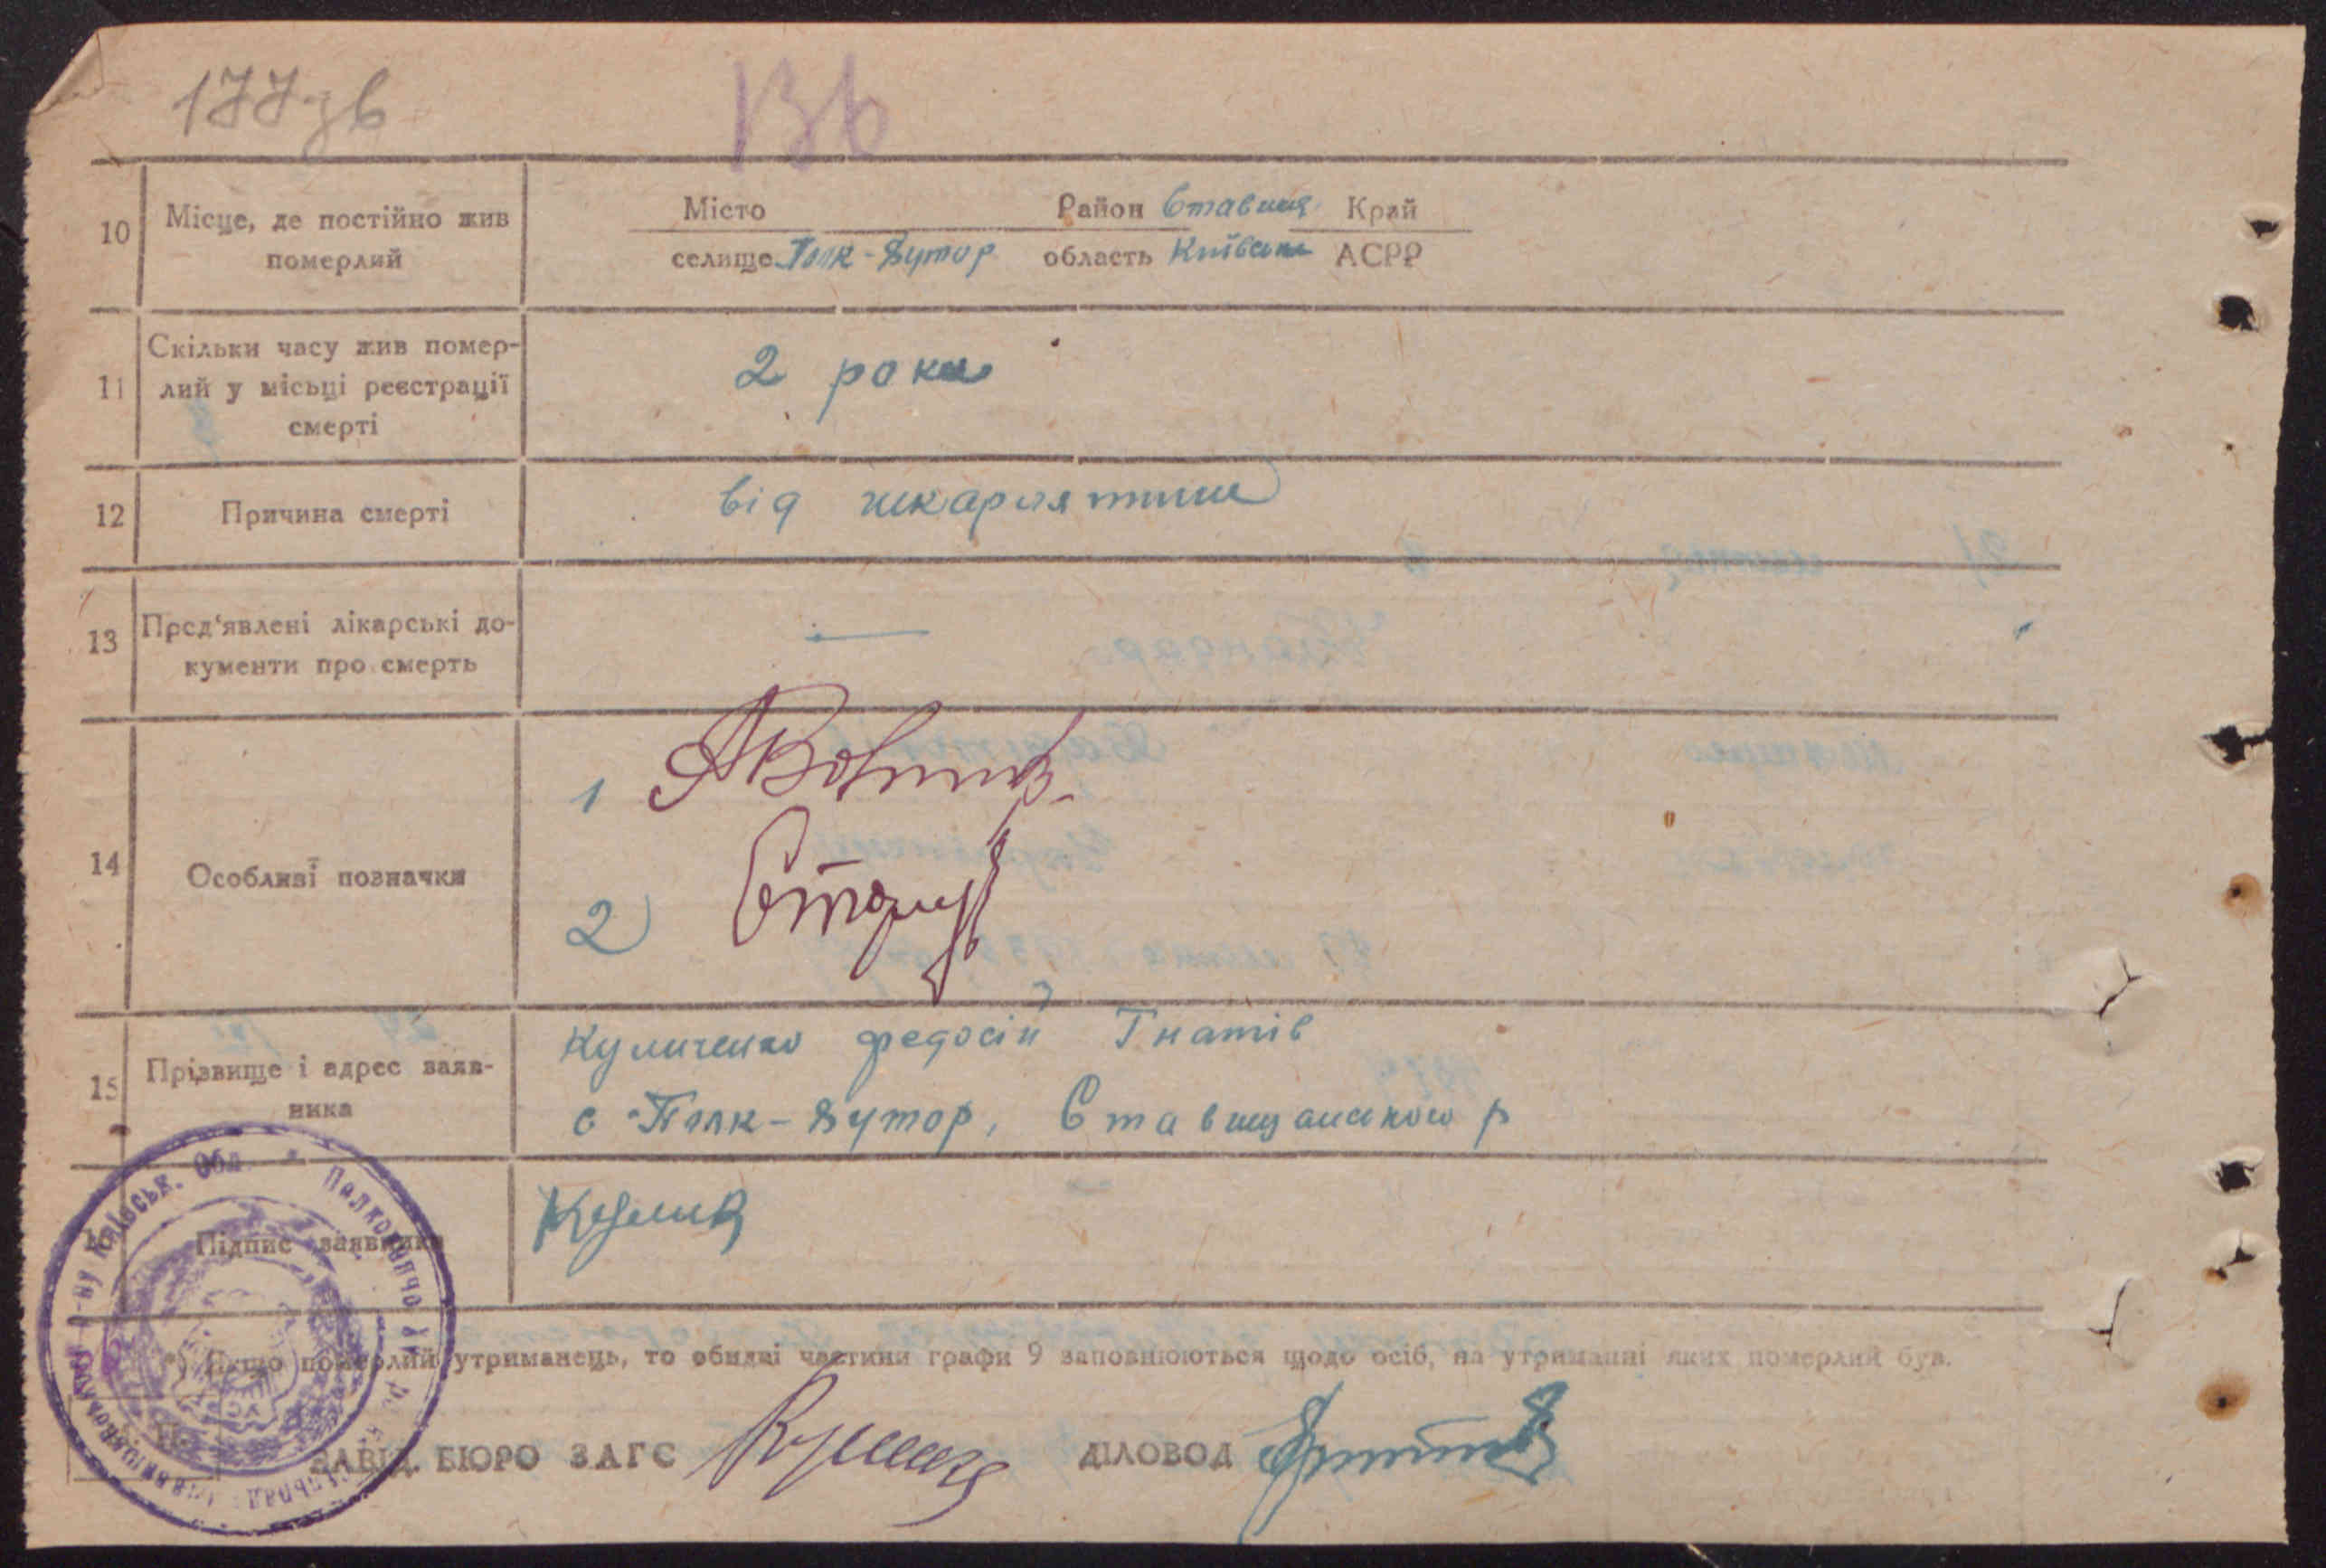 177зв
136
10 Місце, де постійно жив померлий
Місто Район Ставищ. Край
селище Полк-Хутор область Київськ АСРР
11 Скільки часу жив помер-
лий у місьці реєстрації
смерті
2 роки
12 Причина смерті
від шкарлятини
13 Пред'явлені лікарські до-
кументи про смерть
—
14 Особливі позначки
1
2
15 Прізвище і адрес заяв-
ника
Куличенко Федосій Гнатів
с Полк-Хутор, Ставищанського р
16 Підпис заявника
*) Якщо померлий утриманець, то обидві частини графи 9 заповнюються щодо осіб, на утриманні яких померлий був.
ЗАВІД. БЮРО ЗАГС
ДІЛОВОД
р-ну Київськ. Обл. *